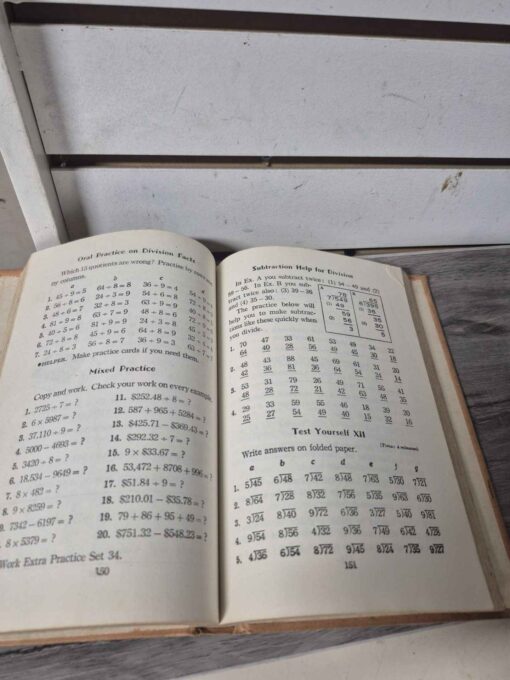 Oral Practice on Division Facts
Which 15 quotients are wrong? Practise by
by columns.
a b c
1. 45 ÷ 9 = 5 64 ÷ 8 = 8 36 ÷ 9 = 4
2. 56 ÷ 8 = 6 24 ÷ 3 = 9 54 ÷ 6 = 8
3. 48 ÷ 6 = 7 32 ÷ 8 = 3 63 ÷ 9 = 9
4. 81 ÷ 9 = 8 63 ÷ 7 = 9 48 ÷ 8 = 6
5. 40 ÷ 5 = 6 81 ÷ 9 = 9 24 ÷ 3 = 8
6. 72 ÷ 8 = 8 45 ÷ 9 = 6 64 ÷ 8 = 9
7. 24 ÷ 8 = 3 56 ÷ 8 = 7 36 ÷ 9 = 3
HELPER. Make practice cards if you need them.
Mixed Practice
Copy and work. Check your work on every example.
1. 2725 ÷ 7 = ?
2. 6 × 5987 = ?
3. 37,110 ÷ 9 = ?
4. 5000 - 4693 = ?
5. 3430 ÷ 8 = ?
6. 18,534 - 9649 = ?
7. 8 × 482 = ?
8. 9 × 8259 = ?
9. 7342 - 6197 = ?
8 × 5379 = ?
11. $252.48 ÷ 8 = ?
12. 587 + 965 + 5284 = ?
13. $425.71 - $369.43 = ?
14. $292.32 ÷ 7 = ?
15. 9 × $33.67 = ?
16. 53,472 + 8708 + 996 = ?
17. $51.84 ÷ 9 = ?
18. $210.01 - $35.78 = ?
19. 79 + 86 + 95 + 49 = ?
20. $751.32 - $548.23 = ?
Work Extra Practice Set 34.
150
Subtraction Help for Division
In Ex. A you subtract twice: (1) 54 - 49 and (2)
56 - 56. In Ex. B you sub-
tract twice also: (3) 39 - 36
and (4) 35 - 30.
The practice below will
help you to make subtrac-
tions like these quickly when
you divide.
1. 70 47 33 61 53 49 34 22
64 40 28 56 49 45 30 18
2. 48 43 88 45 69 61 31 20
42 36 81 36 64 54 24 14
3. 53 31 79 26 49 71 56 41
2. 29 33 59 55 46 18 39 20
25 27 54 49 40 15 32 16
Test Yourself XII
Write answers on folded paper. (Time: 4 minutes)
a b c d e f g
1. 5)45 6)48 7)42 8)48 7)63 5)30 7)21
2. 8)64 7)28 8)32 7)56 5)35 9)63 6)30
3. 3)24 8)40 9)72 6)36 3)27 5)40 9)81
4. 9)54 8)56 4)32 9)36 7)49 6)42 7)35
5. 4)36 6)54 8)72 9)45 8)24 7)35 9)27
151